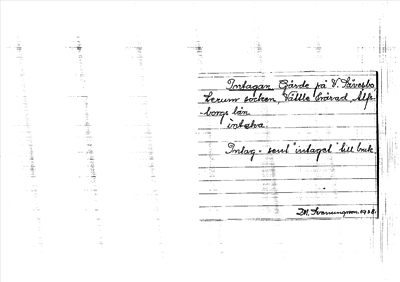 Intagan Gärde på V. Sävesbo,
Lerum socken, Vättle härad, Älfs-
borgs län.
intaka.
Intag - sent "intaget" till bruk.
D.N. Svanungson. 1908.